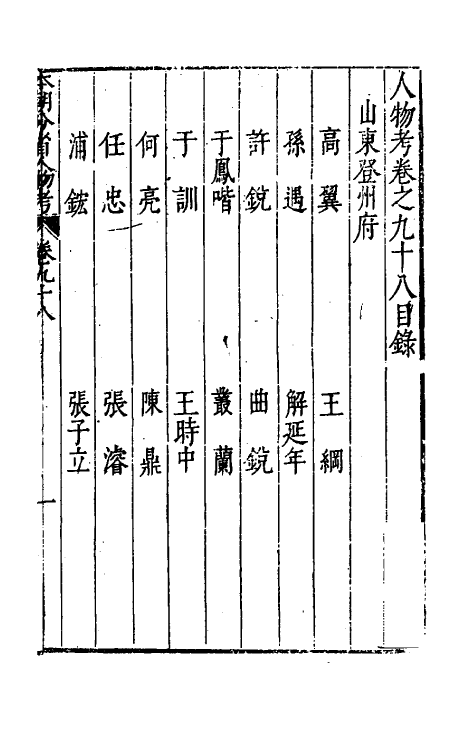 人物考卷之九十八目錄
山東登州府
高翼 王綱
孫遇 解延年
許銳 曲銳
于鳳喈 叢蘭
于訓 王時中
何亮 陳鼎
任忠 張濬
浦鋐 張子立
本朝分省人物考 卷九十八 一